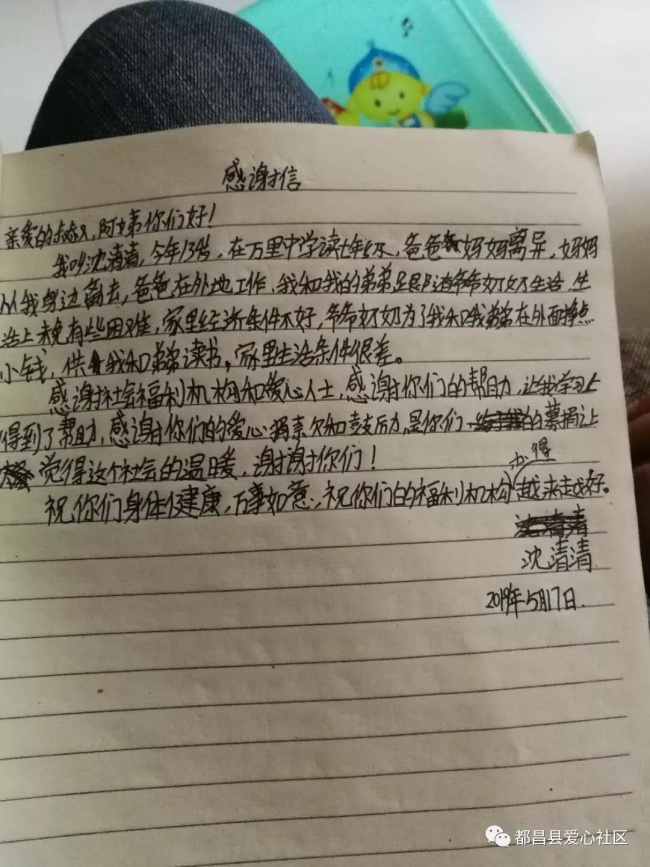 感谢信
亲爱的叔叔,阿姨你们好!
我叫沈清清,今年13岁,在万里中学读七年级,爸爸妈妈离异,妈妈
从我身边离去,爸爸在外地工作,我和我的弟弟是跟着爷爷奶奶生活,生
活上未免有些困难,家里经济条件不好,爷爷奶奶为了我和我弟弟在外面挣点
小钱,供我和弟弟读书,家里生活条件很差。
感谢社会福利机构和爱心人士,感谢你们的帮助,让我学习上
得到了帮助,感谢你们的爱心捐款和鼓励,是你们的募捐让
觉得这个社会的温暖,谢谢你们!
祝你们身体健康,万事如意,祝你们的福利机构办得越来越好。
沈清清
2019年5月17日.
都昌县爱心社区